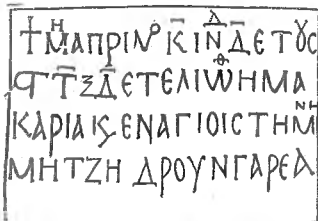 † ΜΗ ΑΠΡΙΛΟ Κ̅ ΙΝΔ Δ̅ ΕΤȢC
ϚΤ̅ΞΔ̅ ΕΤΕΛΙΩΘΗ ΜΑ
ΚΑΡΙΑ Κ̀ ΕΝ ΑΓΙΟΙC ΤΗ ΜΝΗ
ΜΗ ΤΖΗ ΔΡΟΥΝΓΑΡΕΑ